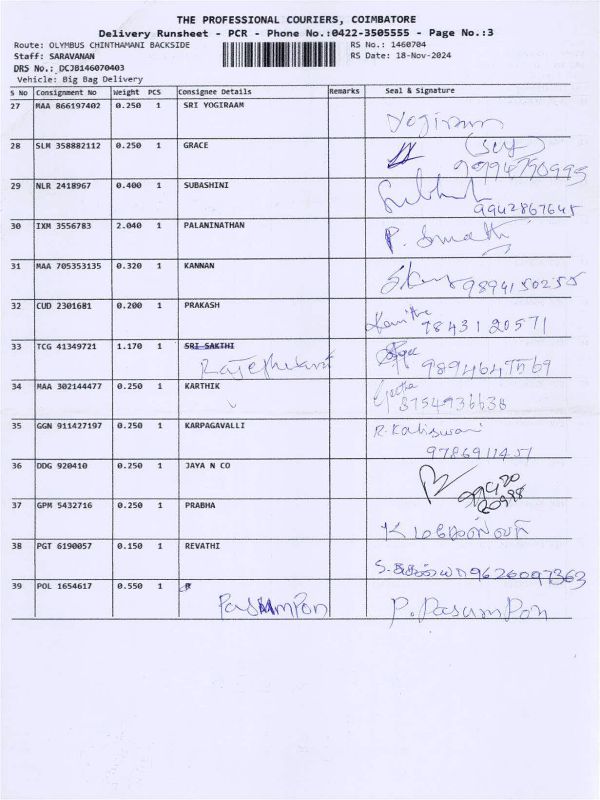 THE PROFESSIONAL COURIERS, COIMBATORE
Delivery Runsheet - PCR - Phone No.:0422-3505555 - Page No.:3
Route: OLYMBUS CHINTHAMANI BACKSIDE RS No.: 1460704
Staff: SARAVANAN RS Date: 18-Nov-2024
DRS No.: DCJB146070403
Vehicle: Big Bag Delivery
S No Consignment No Weight PCS Consignee Details Remarks Seal & Signature
27 MAA 866197402 0.250 1 SRI YOGIRAAM
Yogiram
28 SLM 358882112 0.250 1 GRACE
(Self)
29 NLR 2418967 0.400 1 SUBASHINI
9942867645
30 IXM 3556783 2.040 1 PALANINATHAN
P.
31 MAA 705353135 0.320 1 KANNAN
9894150255
32 CUD 2301681 0.200 1 PRAKASH
7843120571
33 TCG 41349721 1.170 1 SRI SAKTHI
34 MAA 302144477 0.250 1 KARTHIK
Geetha
8754936638
35 GGN 911427197 0.250 1 KARPAGAVALLI
R. Kaliswari
9786911451
36 DDG 920410 0.250 1 JAYA N CO
37 GPM 5432716 0.250 1 PRABHA
38 PGT 6190057 0.150 1 REVATHI
9626097363
39 POL 1654617 0.550 1
Pasumpon P. Pasumpon